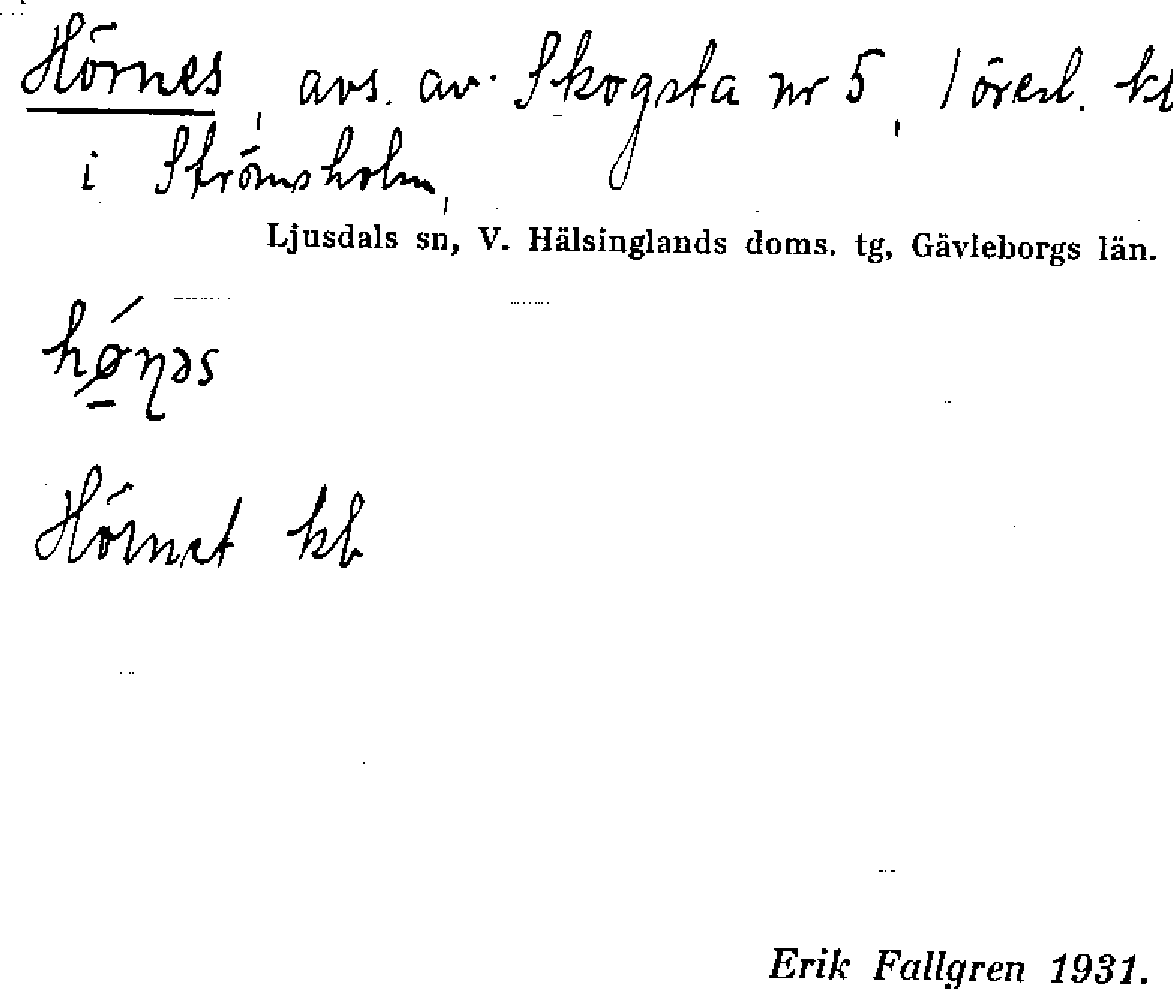 Hörnes, avs. av Skogsta nr 5,
i Strömsholm,
Ljusdals sn, V. Hälsinglands doms. tg, Gävleborgs län.
hø´ɳəs
Hörnet kb
Erik Fallgren 1931.